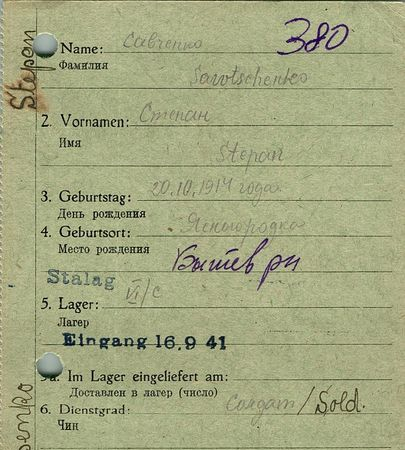 380
Name: Савченко
Фамилия
Sawtschenko
Stepan
2. Vornamen: Степан
Имя
Stepan
3. Geburtstag: 20.10.1914 года
День рождения
4. Geburtsort: Ясногородка
Место рождения
Бышев рн
Stalag VI/C
5. Lager:
Лагер
Eingang 16.9 41
5a. Im Lager eingeliefert am:
Доставлен в лагер (число)
6. Dienstgrad: Солдат / Sold.
Чин
enko